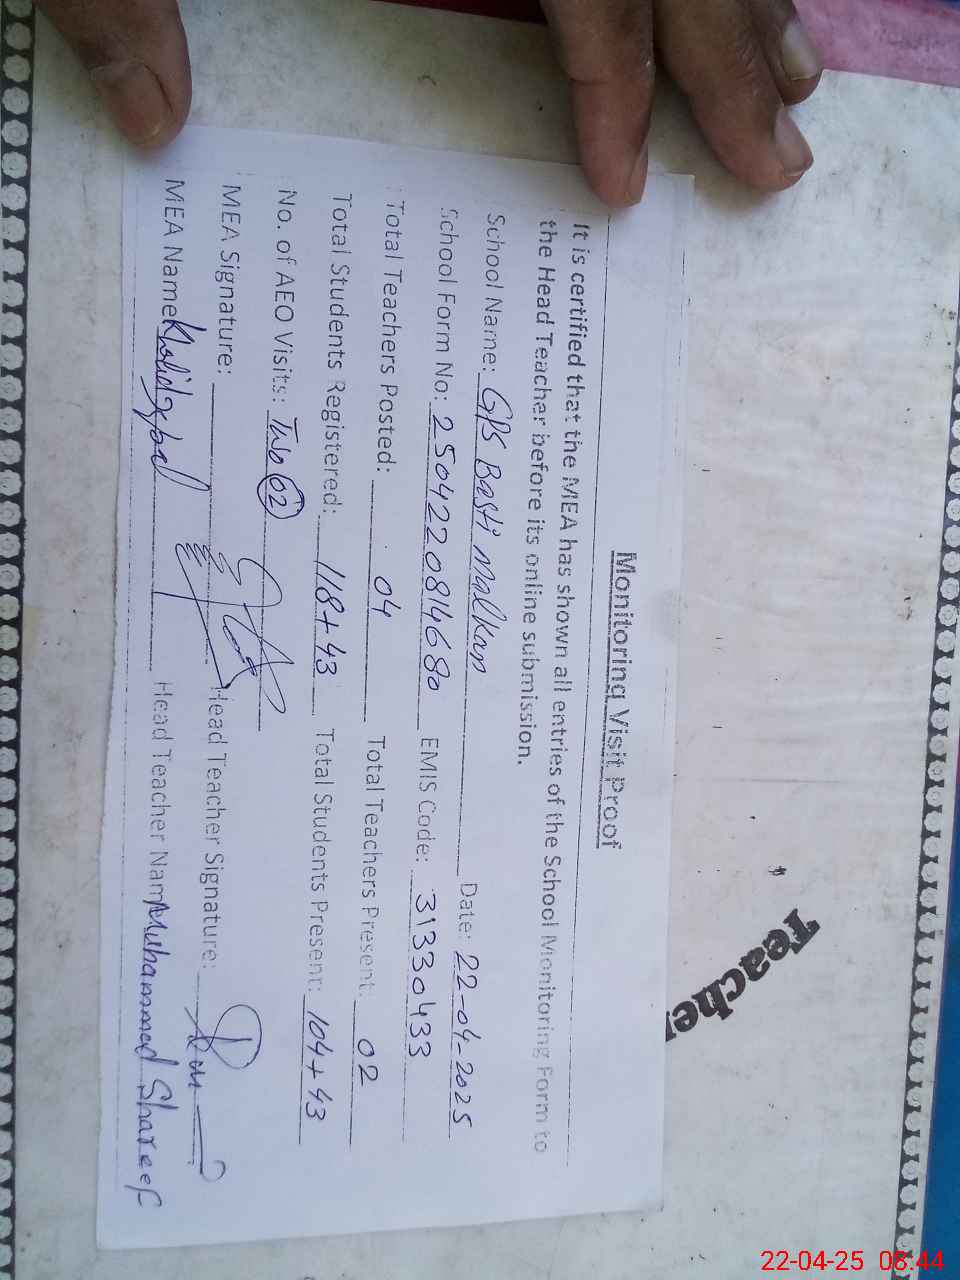 Monitoring Visit Proof
It is certified that the MEA has shown all entries of the School Monitoring Form to
the Head Teacher before its online submission.
School Name: GPS Basti Malkan Date: 22-04-2025
School Form No: 2504220814680 EMIS Code: 31330433
Total Teachers Posted: 04 Total Teachers Present: 02
Total Students Registered: 118+43 Total Students Present: 104+43
No. of AEO Visits: Two 02
MEA Signature: Head Teacher Signature:
MEA Name Khalid Iqbal Head Teacher Name Muhammad Shareef
Teacher
22-04-25 08:44